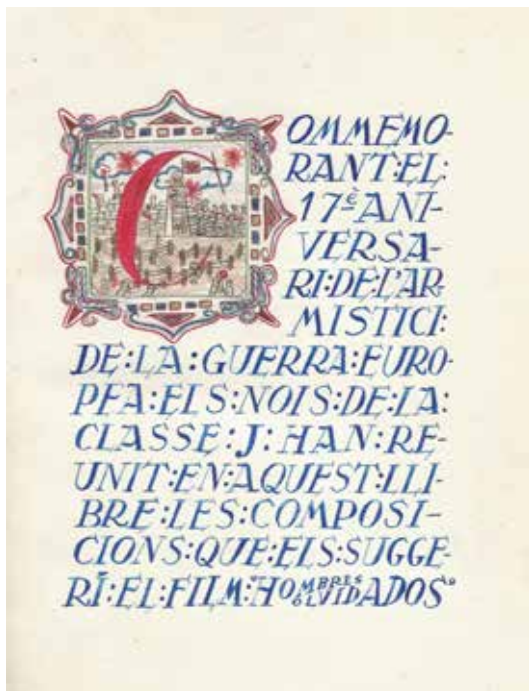 COMMEMO-
RANT:EL:
17È ANI-
VERSA-
RI:DE:L'AR-
MISTICI:
DE:LA:GUERRA:EURO-
PEA:ELS:NOIS:DE:LA:
CLASSE:J:HAN:RE-
UNIT:EN:AQUEST:LLI-
BRE:LES:COMPOSI-
CIONS:QUE:ELS:SUGGE-
RÍ:EL:FILM:"HOMBRES OLVIDADOS"